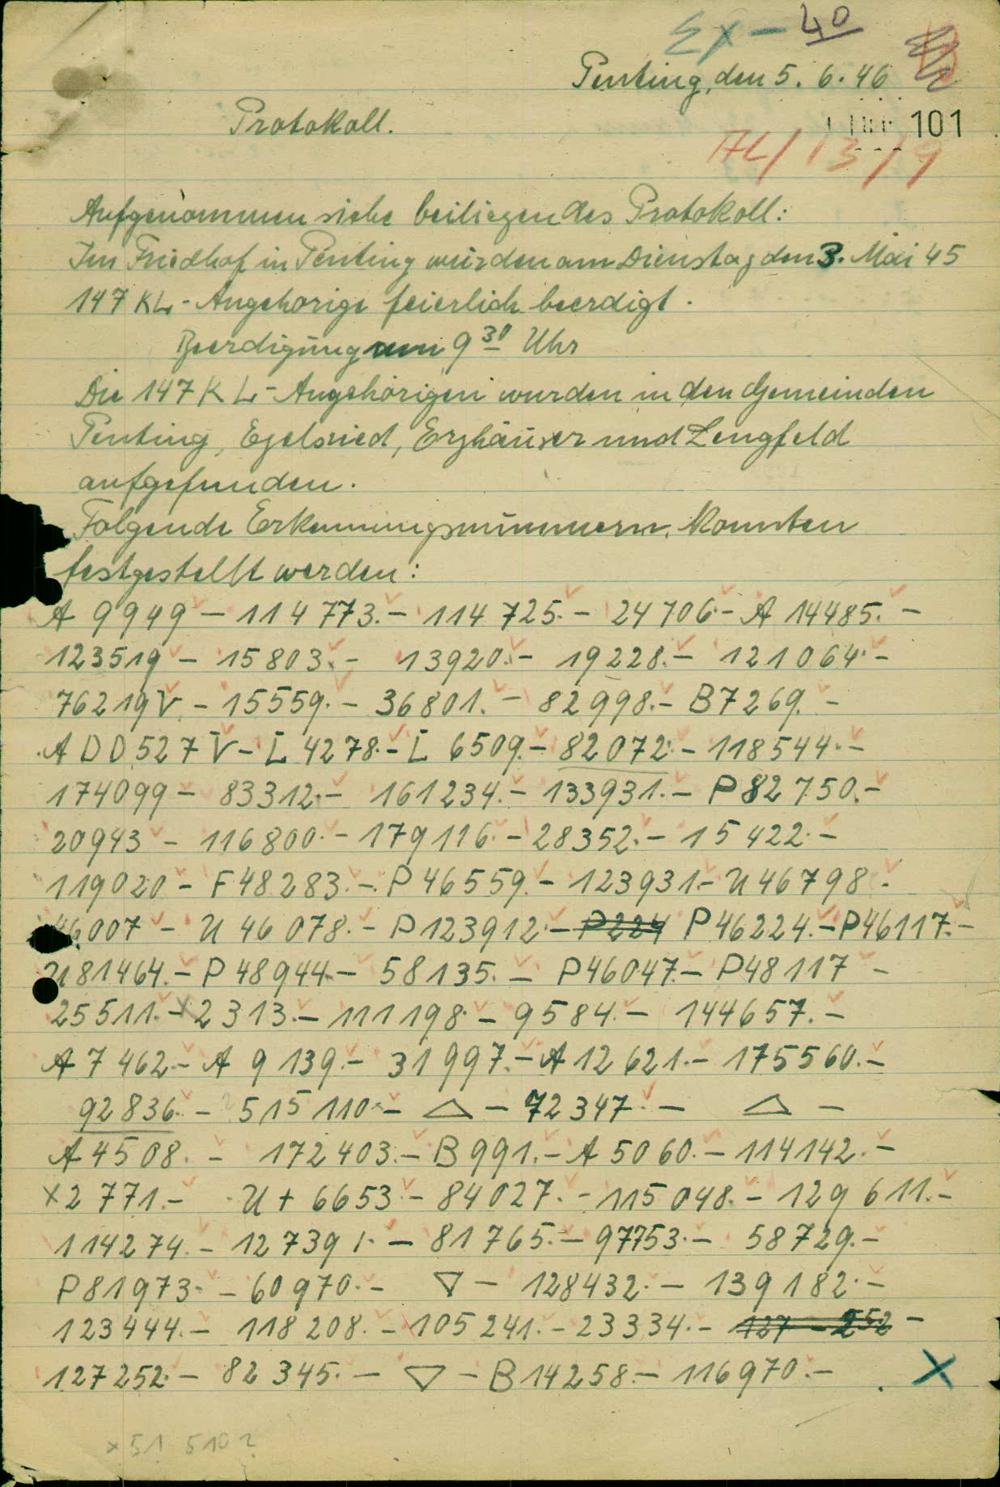 Ex - 40
Penting, den 5. 6. 46
Protokoll.
101
AL/13/9
Aufgenommen siehe beiliegendes Protokoll:
Im Friedhof in Penting wurden am Dienstag den 3. Mai 45
147 KL-Angehörige feierlich beerdigt.
Beerdigung um 9 30 Uhr
Die 147 KL-Angehörigen wurden in den Gemeinden
Penting, Egelsried, Erzhäuser und Lengfeld
aufgefunden.
Folgende Erkennungsnummern konnten
festgestellt werden:
A 9949 - 114 773. - 114 725. - 24 706. - A 14485. -
123519 - 15803. - 13920. - 19228. - 121064. -
76219 V. - 15559. - 36801. - 82998. - B7269. -
A DD 527 V - L 4278. - L 6509. - 82072. - 118544. -
174099 - 83312. - 161234. - 133931. - P 82750. -
20943 - 116800. - 179116. - 28352. - 15422. -
119020 - F 48283. - P 46559. - 123931 - U 46798. -
46007 - U 46078. - P 123912 - P 224 P 46224. - P46117. -
U81464. - P 48944 - 58135. - P46047 - P48117 -
25511. - x2313. - 111198. - 9584. - 144657. -
A 7462. - A 9139. - 31997. - A 12621. - 175560. -
92836. - 515110. - △ - 72347. - △ -
A 4508. - 172403. - B 991. - A 5060. - 114142. -
x2771. - U + 6653. - 84027. - 115048. - 129611. -
114274. - 127391. - 81765. - 97753. - 58729. -
P81973. - 60970. - ▽ - 128432. - 139182. -
123444. - 118208. - 105241. - 23334. - 127 - 252 -
127252. - 82345. - ▽ - B 14258. - 116970. - X
x 51 510 ?